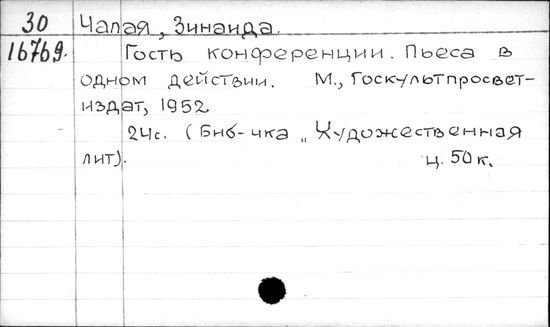 30 Чалая, Зинаида.
16769. Гость конференции. Пьеса в
одном действии. М., Госкультпросвет-
издат, 1952
24с. (Биб-чка „Художественная
лит). ц. 50к.